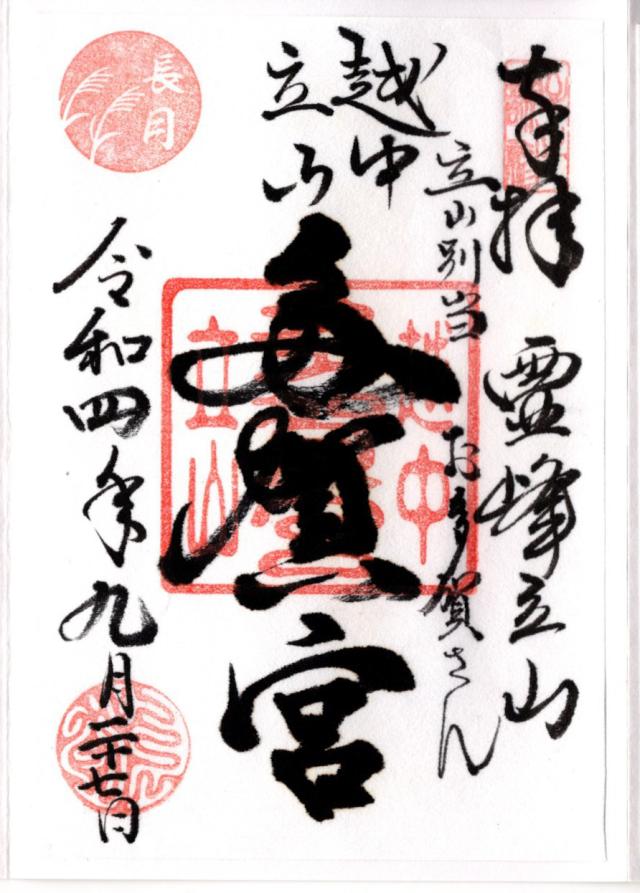 奉拝 霊峰立山
立山別当 お多賀さん
越中
立山
多賀宮
越中
立山
長月
令和四年九月二十七日